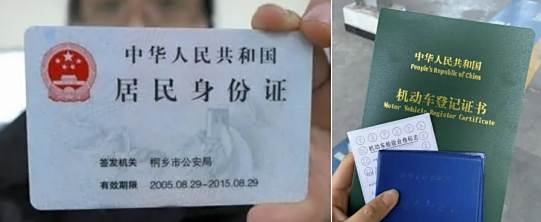 中华人民共和国
居民身份证
签发机关 桐乡市公安局
有效期限 2005.08.29-2015.08.29
中华人民共和国
People's Republic of China
机动车登记证书
Motor Vehicle Register Certificate
机动车检验合格标志